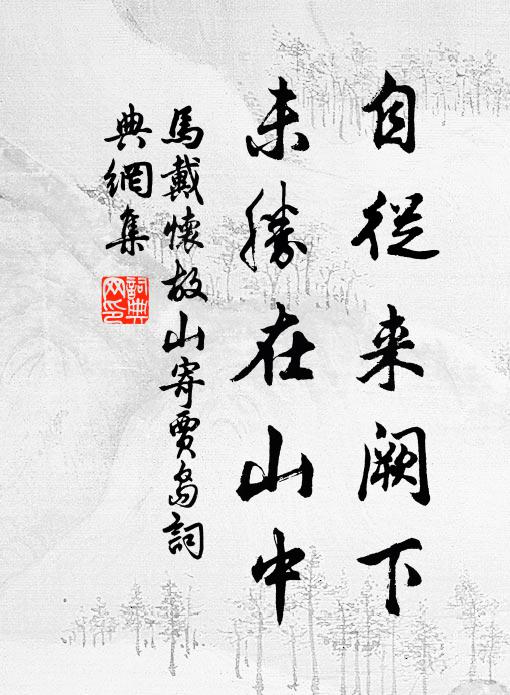 自從来阙下
未勝在山中
馬戴懷故山寄賈島詞
典網集
詞典
网印